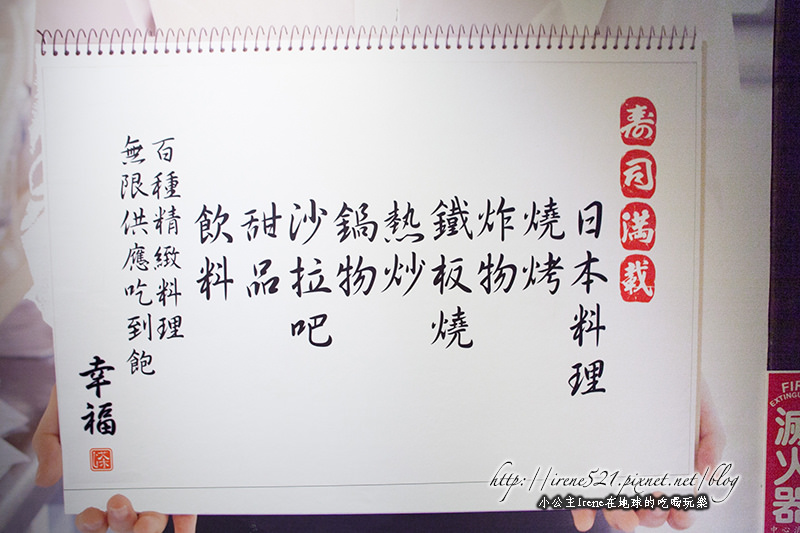 寿司滿載
日本料理
燒烤
炸物
鐵板燒
熱炒
鍋物
沙拉吧
甜品
飲料
百種精緻料理
無限供應吃到飽
幸福
FIR
EXTINGU
滅火器
http://irene521.pixnet.net/blog
小公主Irene在地球的吃喝玩樂